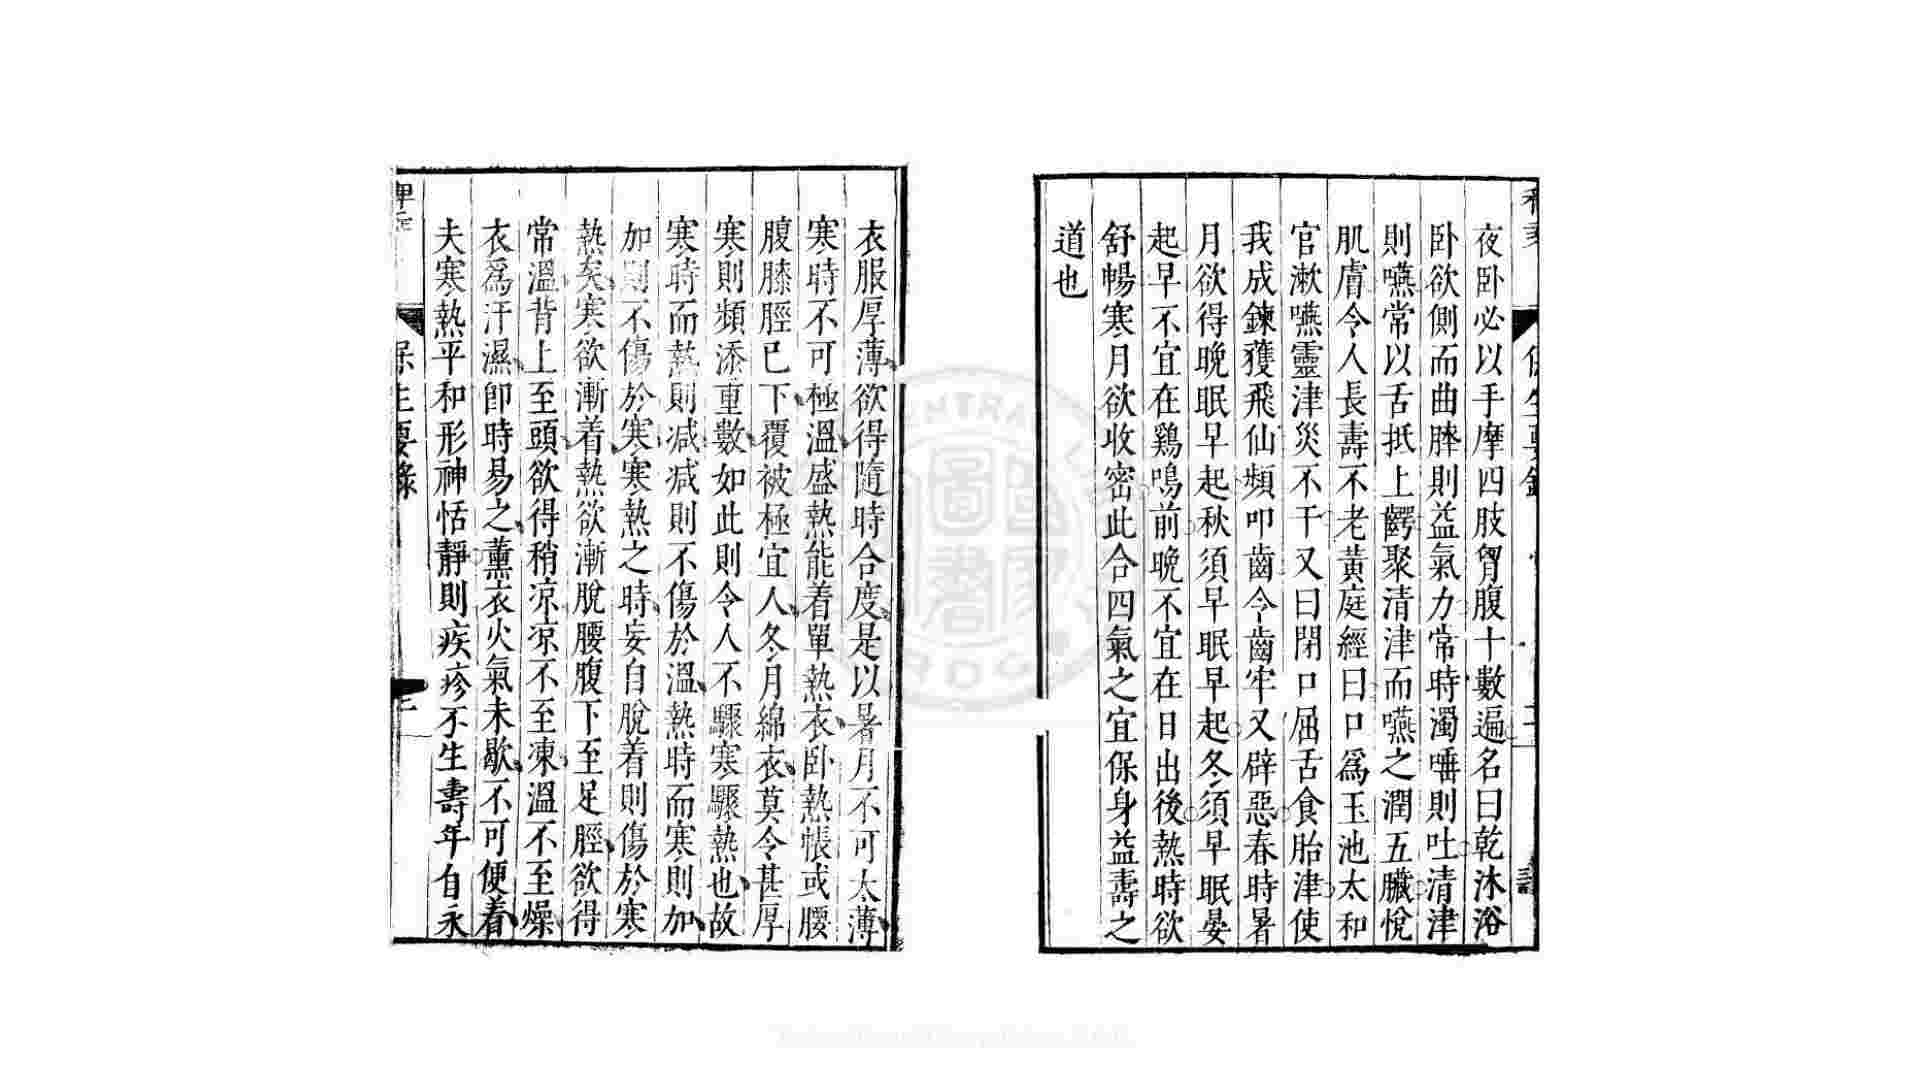 保生要錄
夜卧必以手摩四肢胷腹十數遍名曰乾沐浴
卧欲側而曲膝則益氣力常時濁唾則吐清津
則嚥常以舌抵上齶聚清津而嚥之潤五臟悅
肌膚令人長壽不老黃庭經曰口爲玉池太和
官漱嚥靈津災不干又曰閉口屈舌食胎津使
我成鍊獲飛仙頻叩齒令齒牢又辟惡春時暑
月欲得晚眠早起秋須早眠早起冬須早眠晏
起早不宜在鷄鳴前晚不宜在日出後熱時欲
舒暢寒月欲收密此合四氣之宜保身益壽之
道也
衣服厚薄欲得隨時合度是以暑月不可太薄
寒時不可極溫盛熱能着單熱衣卧熱帳或腰
腹膝脛已下覆被極宜人冬月綿衣莫令甚厚
寒則頻添重數如此則令人不驟寒驟熱也故
寒時而熱則減減則不傷於溫熱時而寒則加
加則不傷於寒寒熱之時妄自脫着則傷於寒
熱矣寒欲漸着熱欲漸脫腰腹下至足脛欲得
常溫背上至頭欲得稍涼涼不至凍溫不至燥
衣爲汗濕即時易之薰衣火氣未歇不可便着
夫寒熱平和形神恬靜則疾疹不生壽年自永
保生要錄